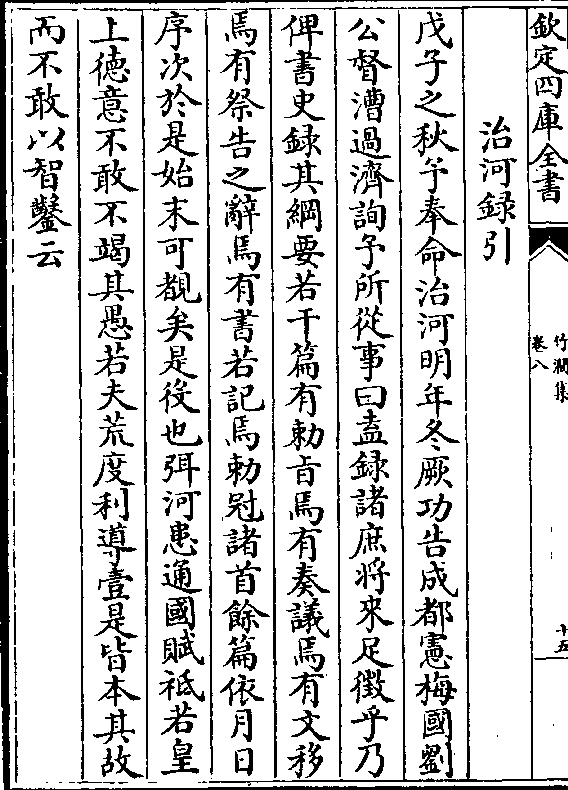 欽定四庫全書
竹澗集
卷八
十五
治河録引
戊子之秋予奉命治河明年冬厥功告成都憲梅國劉
公督漕過濟詢予所從事曰盍録諸庶将來足徴乎乃
俾書史録其綱要若干篇有勅㫖焉有奏議焉有文移
焉有祭告之辭焉有書若記焉勅冠諸首餘篇依月日
序次於是始末可覩矣是役也弭河患通國賦祗若皇
上徳意不敢不竭其愚若夫荒度利導壹是皆本其故
而不敢以智鑿云